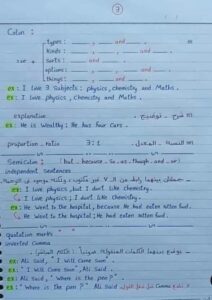 3
Colon :
types : ___ , ___ and ___ .
kinds : ___ , ___ , ___ and ___ .
sorts : ___ and ___ .
options : ___ , ___ and ___ .
things : ___ , ___ and ___ .
ex : I love 3 subjects : physics, chemistry and Maths.
ex : I love physics, chemistry and Maths.
explanation
ex : He is wealthy : He has four cars.
proportion - ratio 3 : 1
Semicolon ; ( but - because - so - as - though - and - or )
independent sentences
ex : I love physics, but I don't like chemistry.
I love physics ; I don't like chemistry.
ex : He went to the hospital, because He had eaten rotten food.
He went to the hospital ; He had eaten rotten food.
quotation marks
inverted Comma
ex : Ali said, " I will come soon " .
ex : " I will come soon ", Ali said .
ex : Ali said, " where is the pen ? " .
ex : " where is the pen ? " Ali said